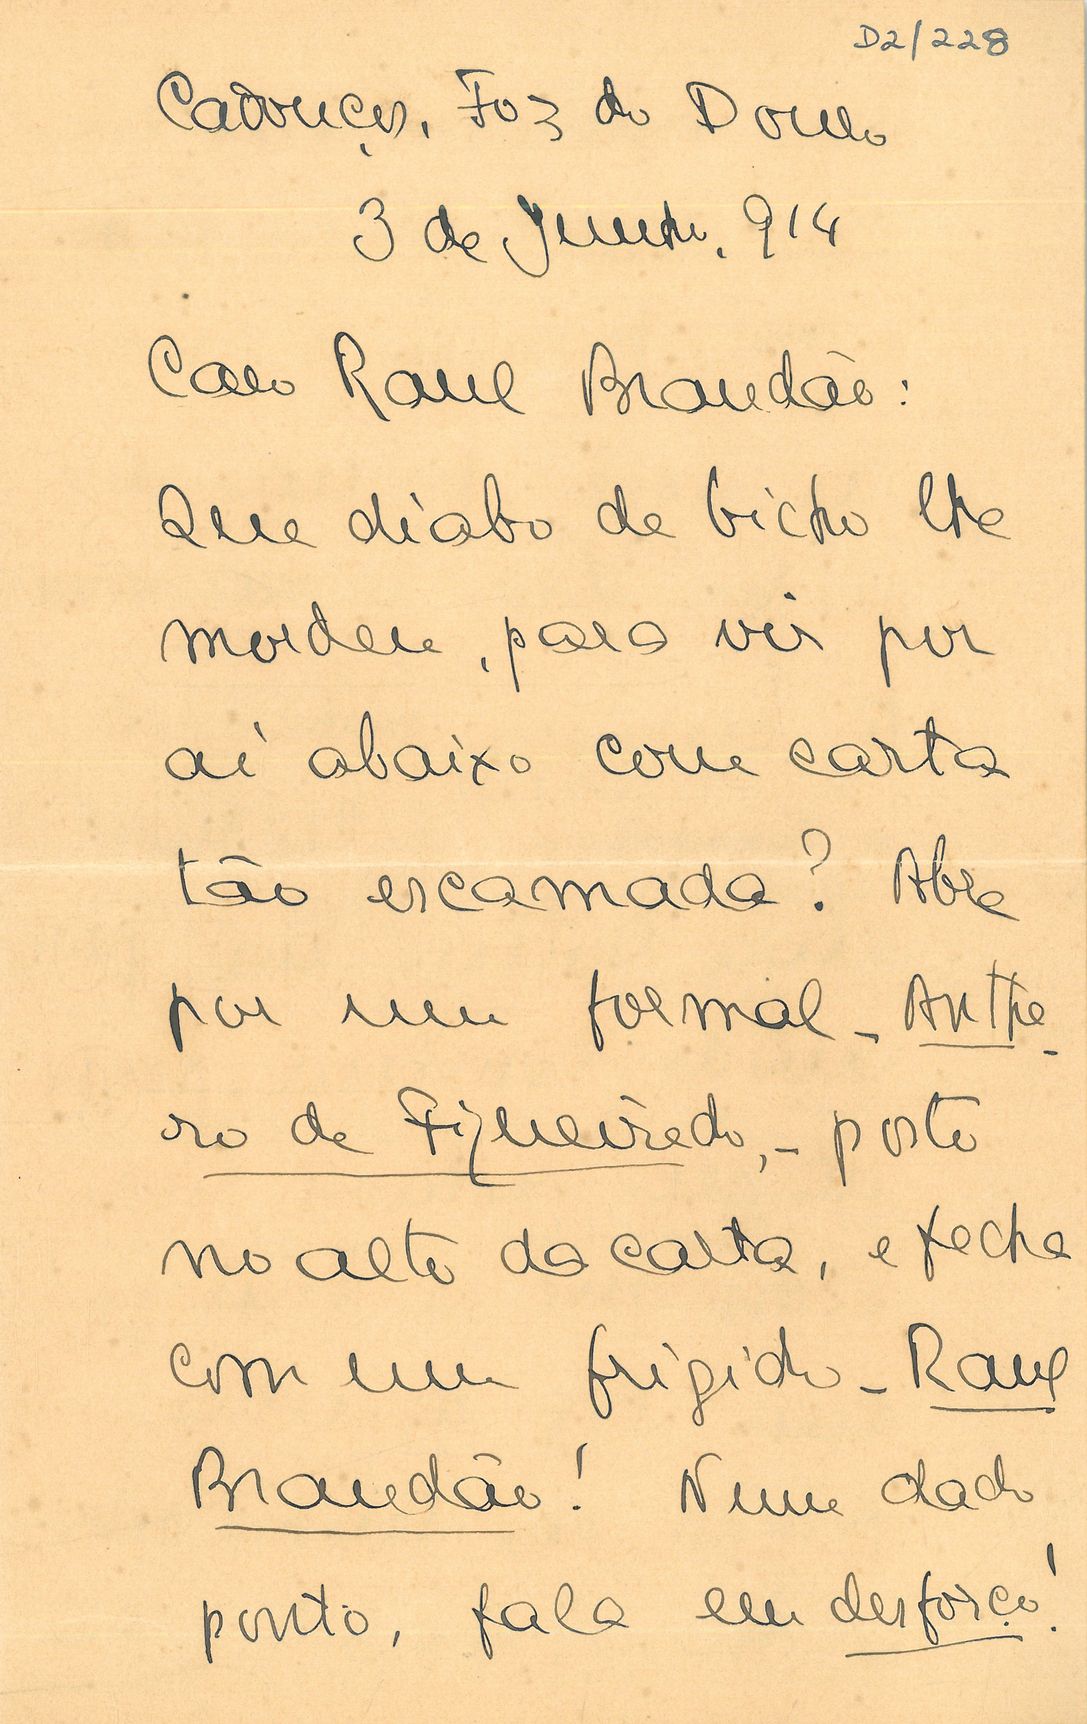 D2/228
Cadouços, Foz do Douro
3 de Junho, 914
Caro Raul Brandão:
Que diabo de bicho lhe
mordeu, para vir por
aí abaixo com carta
tão escamada? Abre
por um formal - Anthe-
ro de Figueirêdo, - posto
no alto da carta, e fecha
com um frigido - Raul
Brandão! Num dado
ponto, fala em desforço!